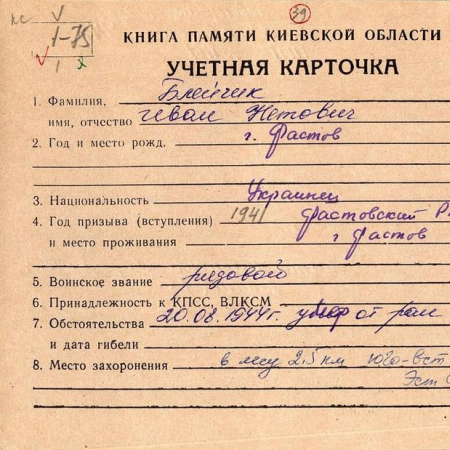 39
1-75
КНИГА ПАМЯТИ КИЕВСКОЙ ОБЛАСТИ
УЧЕТНАЯ КАРТОЧКА
1. Фамилия,
имя, отчество Иван
2. Год и место рожд. г. Фастов
3. Национальность Украинец
4. Год призыва (вступления) 1941 Фастовский Р
и место проживания г Фастов
5. Воинское звание рядовой
6. Принадлежность к КПСС, ВЛКСМ
7. Обстоятельства 20.08.1944г. умер от ран
и дата гибели
8. Место захоронения в лесу 2,5 км юго-вст
Эст